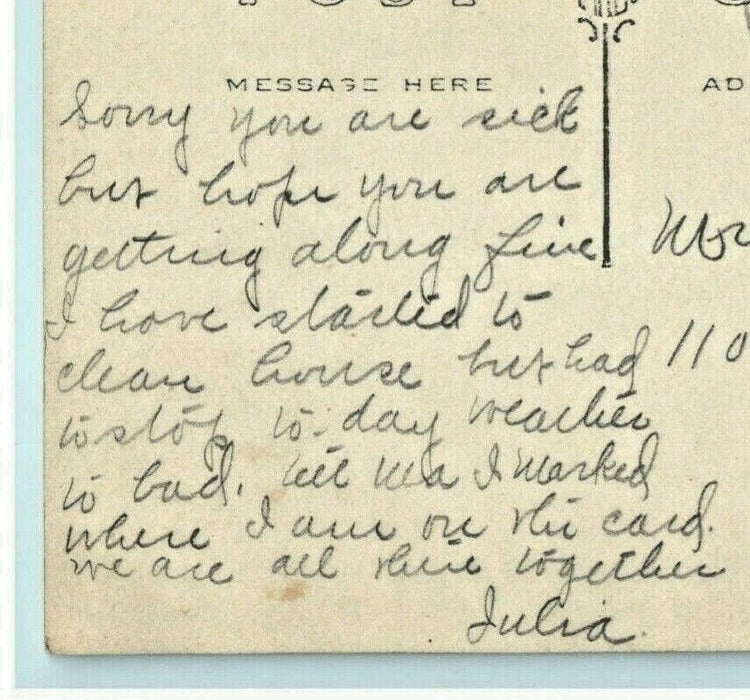 POST
MESSAGE HERE
AD
Sorry you are sick
but hope you are
getting along fine
I have started to
clean house but had
to stop to-day weather
to bad. tell Ma I marked
where I am on the card.
we are all there together
Julia.
110